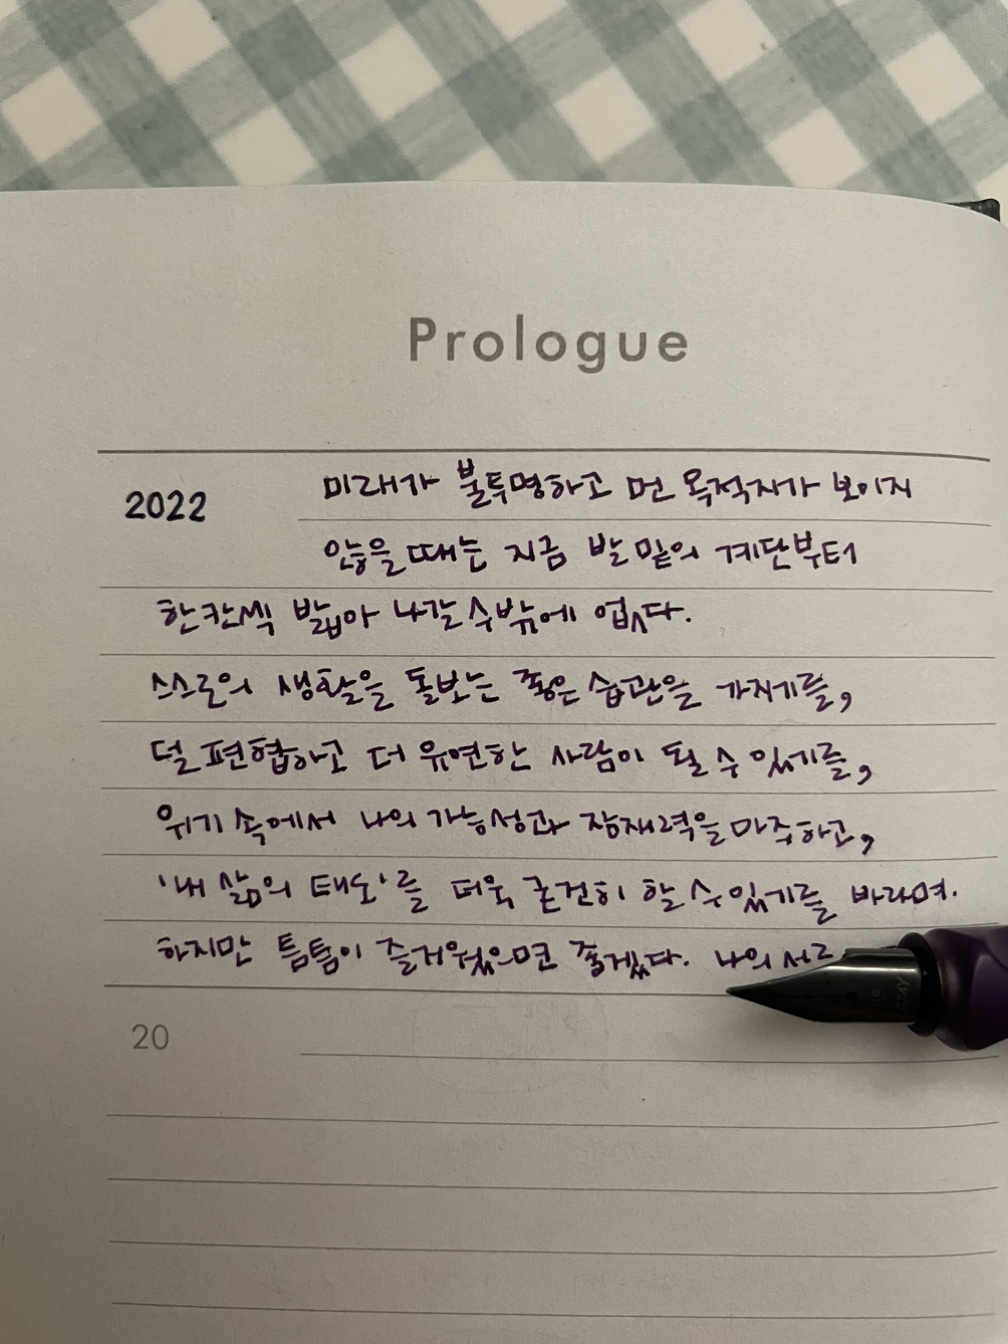 Prologue
2022 미래가 불투명하고 먼 목적지가 보이지
않을 때는 지금 발 밑의 계단부터
한칸씩 밟아 나갈 수밖에 없다.
스스로의 생활을 돌보는 좋은 습관을 가지기를,
덜 편협하고 더 유연한 사람이 될 수 있기를,
위기 속에서 나의 가능성과 잠재력을 마주하고,
'내 삶의 태도'를 더욱 굳건히 할 수 있기를 바라며.
하지만 틈틈이 즐거웠으면 좋겠다. 나의
20